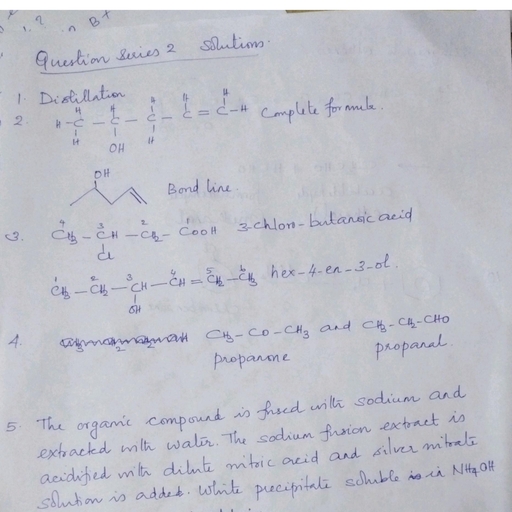 n B+
Question Series 2 Solutions.
1. Distillation
2. H - C - C - C - C = C - H Complete formula.
H H H H H
H OH H
OH
Bond line.
3. CH3 - CH - CH2 - COOH 3-chloro-butanoic acid
4 3 2 1
Cl
1 2 3 4 5 6
CH3 - CH2 - CH - CH = CH - CH3 hex-4-en-3-ol.
OH
4. CH3 - CO - CH3 and CH3 - CH2 - CHO
propanone propanal.
5. The organic compound is fused with sodium and
extracted with water. The sodium fusion extract is
acidified with dilute nitric acid and silver nitrate
solution is added. White precipitate soluble in NH4OH